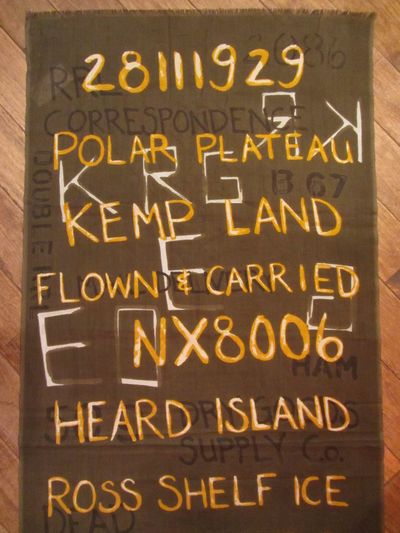 28111929
CORRESPONDENCE
POLAR PLATEAU
K R G
B 67
KEMP LAND
E
FLOWN & CARRIED
E
NX8006
HAM
HEARD ISLAND
SUPPLY Co.
ROSS SHELF ICE
DEAD